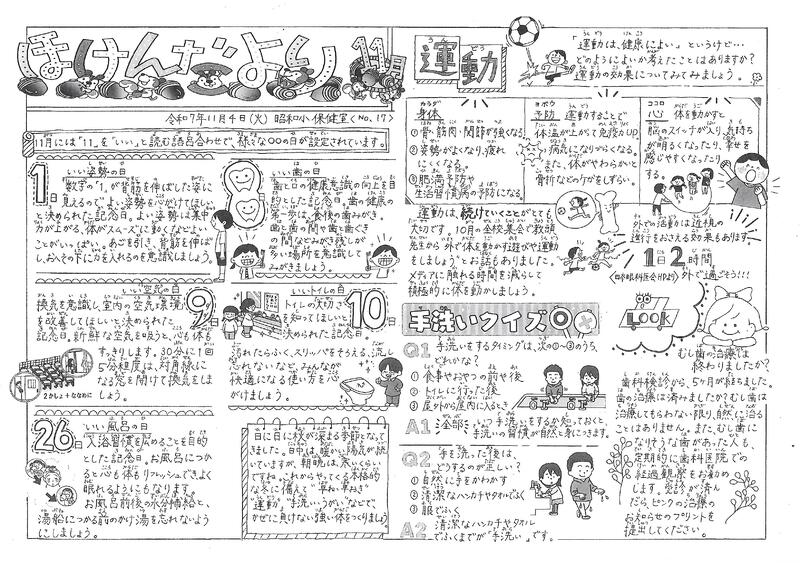 ほけんだより 11月
令和7年11月4日(火) 昭和小 保健室 <No.17>
11月には“11”を「いい」と読む語呂合わせで、様々な〇〇の日が設定されています。
1日
いい姿勢の日
数字の“1”が背筋を伸ばした姿に
見えるので、よい姿勢を心がけてほしい
と決められた記念日。よい姿勢は集中
力が上がる、体がスムーズに動くなどよい
ことがいっぱい。あごを引き、背筋を伸ば
し、おへその下に力を入れるのを意識しましょう。
8日
いい歯の日
歯と口の健康意識の向上を目
的とした記念日。歯の健康の
第一歩は、食後の歯みがき。
歯と歯の間や歯と歯ぐき
の間などみがき残しが
多い場所を意識して
みがきましょう。
いい空気の日
9日
換気を意識し、室内の空気環境
を改善してほしいと決められた
記念日。新鮮な空気を吸うと、心も体も
すっきりします。30分に1回
5分程度は、対角線に
なる窓を開けて換気をしま
しょう。
2かしょ+ななめに
いいトイレの日
10日
トイレの大切さ
を知ってほしいと
決められた記念日
汚れたらふく、スリッパをそろえる、流し
忘れないなど、みんなが
快適になる使い方を心
がけましょう。
26日
いい風呂の日
入浴習慣を広めることを目的
とした記念日。お風呂につか
ると心も体もリフレッシュでき、よく
眠れるようにもなります。
お風呂前後の水分補給と、
湯船につかる前のかけ湯を忘れないよう
にしましょう。
日に日に秋が深まる季節となって
きました。日中は、暖かい陽気が続
いていますが、朝晩は、寒いくらい
ですね。これからやってくる本格的
な冬に備えて“早ね・早おき”
“運動”“手洗い・うがい”などで
かぜに負けない強い体をつくりましょう
運動
「運動は、健康によい」というけど…
どのようによいか考えたことはありますか?
運動の効果についてみてみましょう。
カラダ
身体
①骨・筋肉・関節が強くなる。
②姿勢がよくなり、疲れ
にくくなる。
③肥満予防や
生活習慣病の予防になる。
ヨボウ
予防 運動することで
体温が上がって免疫力UP。
病気になりづらくなる。
また、体がやわらかいと
骨折などのケガをしずらい。
ココロ
心 体を動かすと
脳のスイッチが入り、気持ち
が明るくなったり、幸せを
感じやすくなったり
する。
運動は、続けていくことがとても
大切です。10月の全校集会で教頭
先生から「外で体を動かす遊びや運動
をしましょう」とお話もありました。
メディアに触れる時間を減らして
積極的に体を動かしましょう。
外での活動は近視の
進行をおさえる効果もあります。
1日2時間
<日本眼科医会HPより> 外で過ごそう!!!
手洗いクイズ〇×
Q1 手洗いをするタイミングは、次の①〜③のうち、
どれかな?
①食事やおやつの前や後
②トイレに行った後
③屋外から屋内に入るとき
A1 全部 いつ手洗いをするか知っておくと、
手洗いの習慣が自然と身につきます。
Q2 手を洗った後は、
どうするのが正しい?
①自然に手をかわかす
②清潔なハンカチやタオルでふく
③服でふく
A2 清潔なハンカチやタオル
でふくまでが“手洗い”です。
LOOK
むし歯の治療は
終わりましたか?
歯科検診から、5ヶ月が経ちました。
歯の治療は済みましたか?むし歯は
治療してもらわない限り、自然に治る
ことはありません。また、むし歯に
なりそうな歯があった人も、
定期的に歯科医院での
経過観察をお勧め
します。受診が済ん
だら、ピンクの治療の
お知らせのプリントを
提出してください。